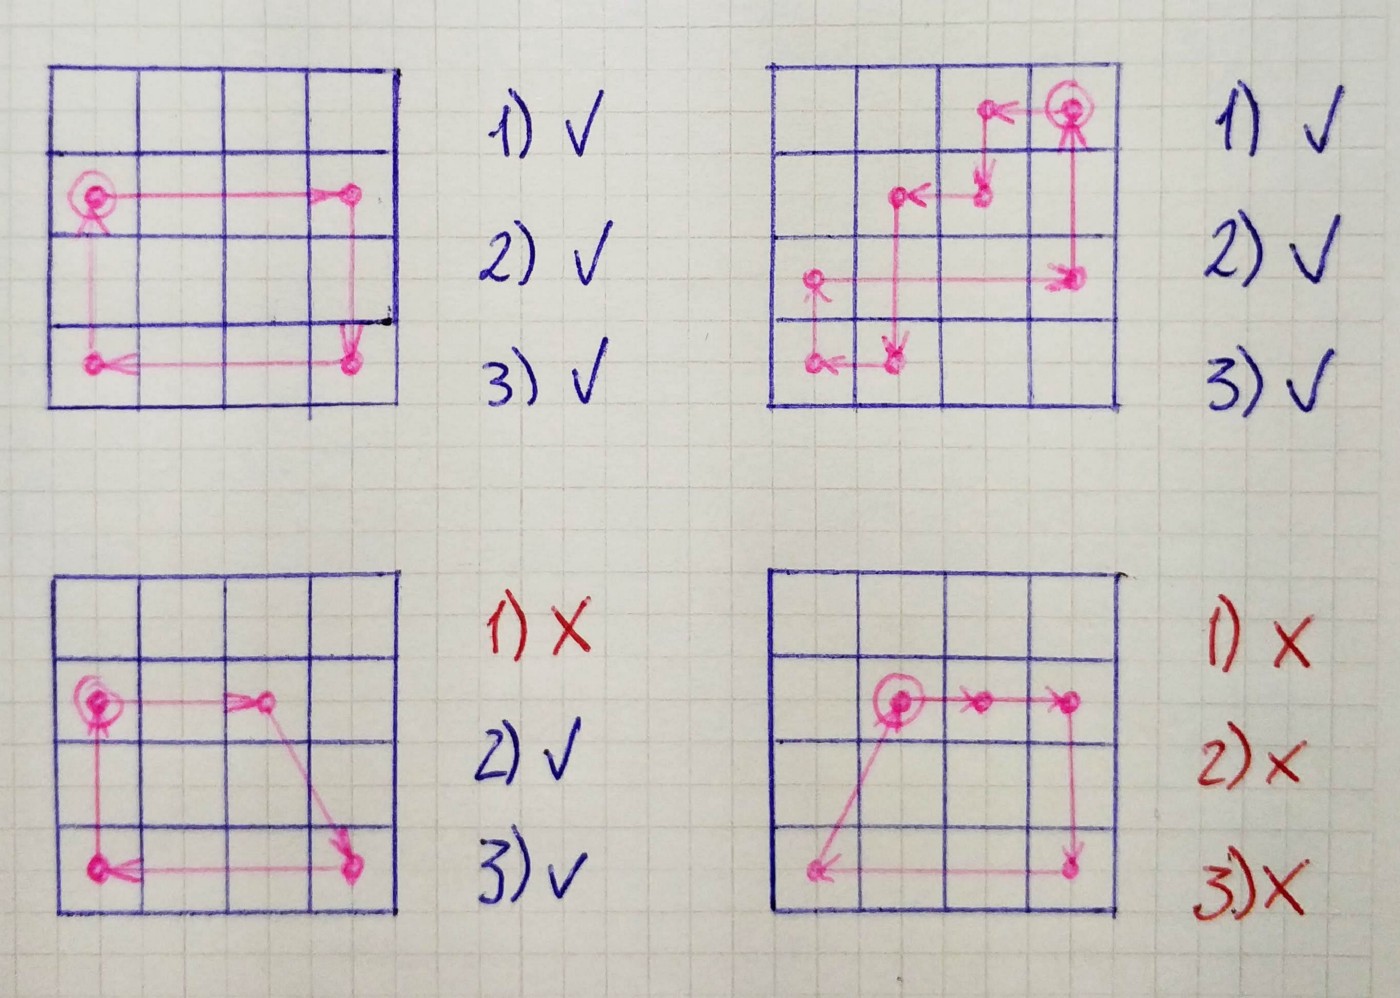 1) ✓
2) ✓
3) ✓
1) ✓
2) ✓
3) ✓
1) X
2) ✓
3) ✓
1) X
2) X
3) X